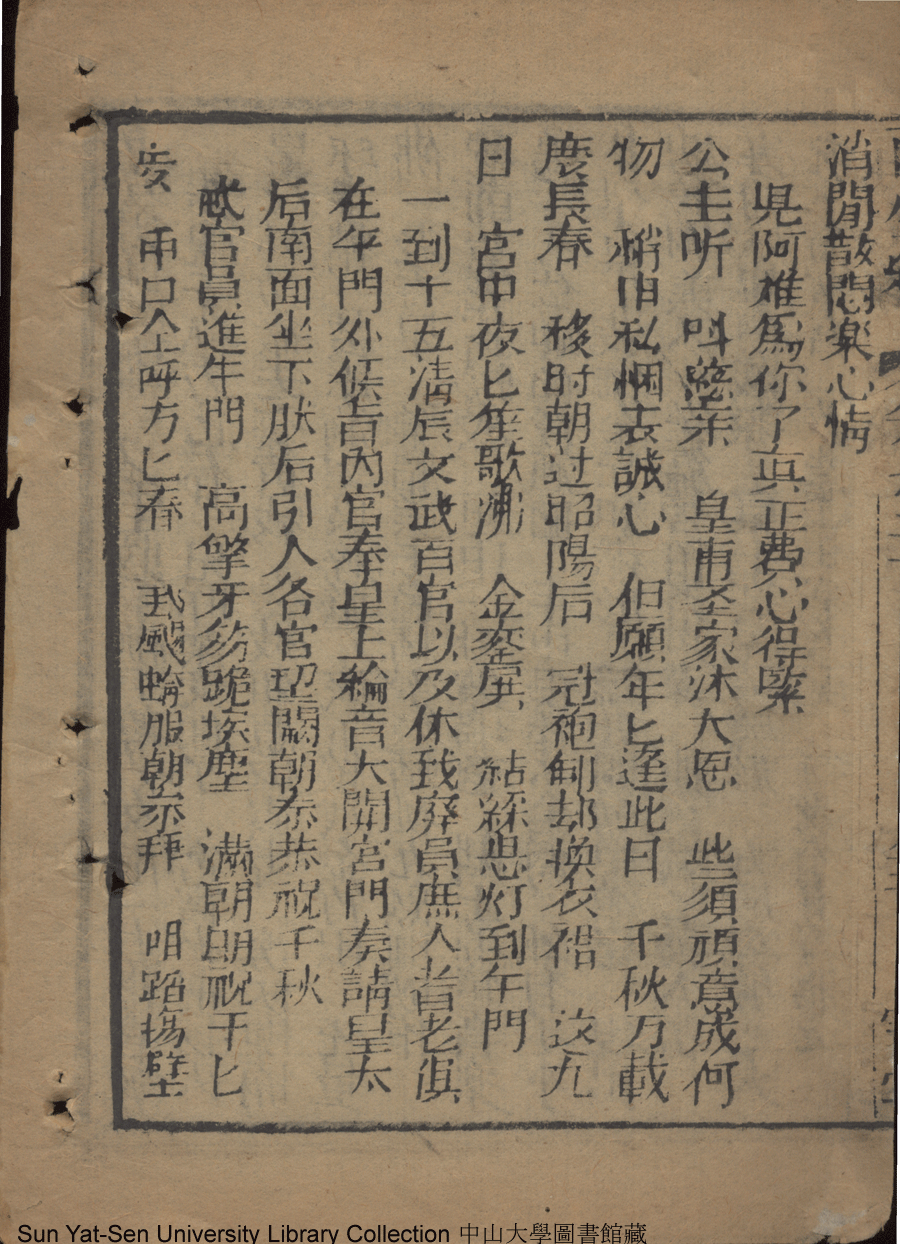 消閒散悶楽心情
児阿难為你了真正費心得緊
公主听 呌 皇甫圣家沐大恩 些須頑意成何
物 稍由私悃表誠心 但願年匕逢此日 千秋万載
慶長春 移时朝过昭陽后 冠袍制却換衣裙 这九
日 宮中夜匕笙歌沸 金屏 結綵悬灯到午門
一到十五清辰文武百官以及休致廃員庶人耆老俱
在午門外候旨内官奉皇上綸音大開宮門奏請皇太
后南面坐下朕后引人各官望闕朝叅恭祝千秋
官員進午門 高擎牙笏跪埃塵 滿朝朝祝千匕
歲 再口仝呼万匕春 蟒服朝叅拜 唱踏揚壁
Sun Yat-Sen University Library Collection 中山大學圖書館藏